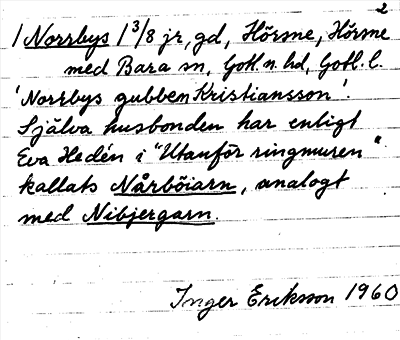 2
/ Norrbys 1 3/8 jr, gd, Hörsne, Hörsne
med Bara sn, Gotl. n. hd, Gotl. l.
'Norrbys gubben Kristiansson'.
Själva husbonden har enligt
Eva Hedén i "Utanför ringmuren"
kallats Nårböiarn, analogt
med Nibjergarn.
Inger Eriksson 1960